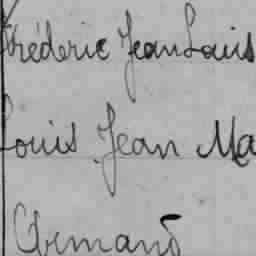 Fréderic Jean Louis
Louis Jean Ma
Armand